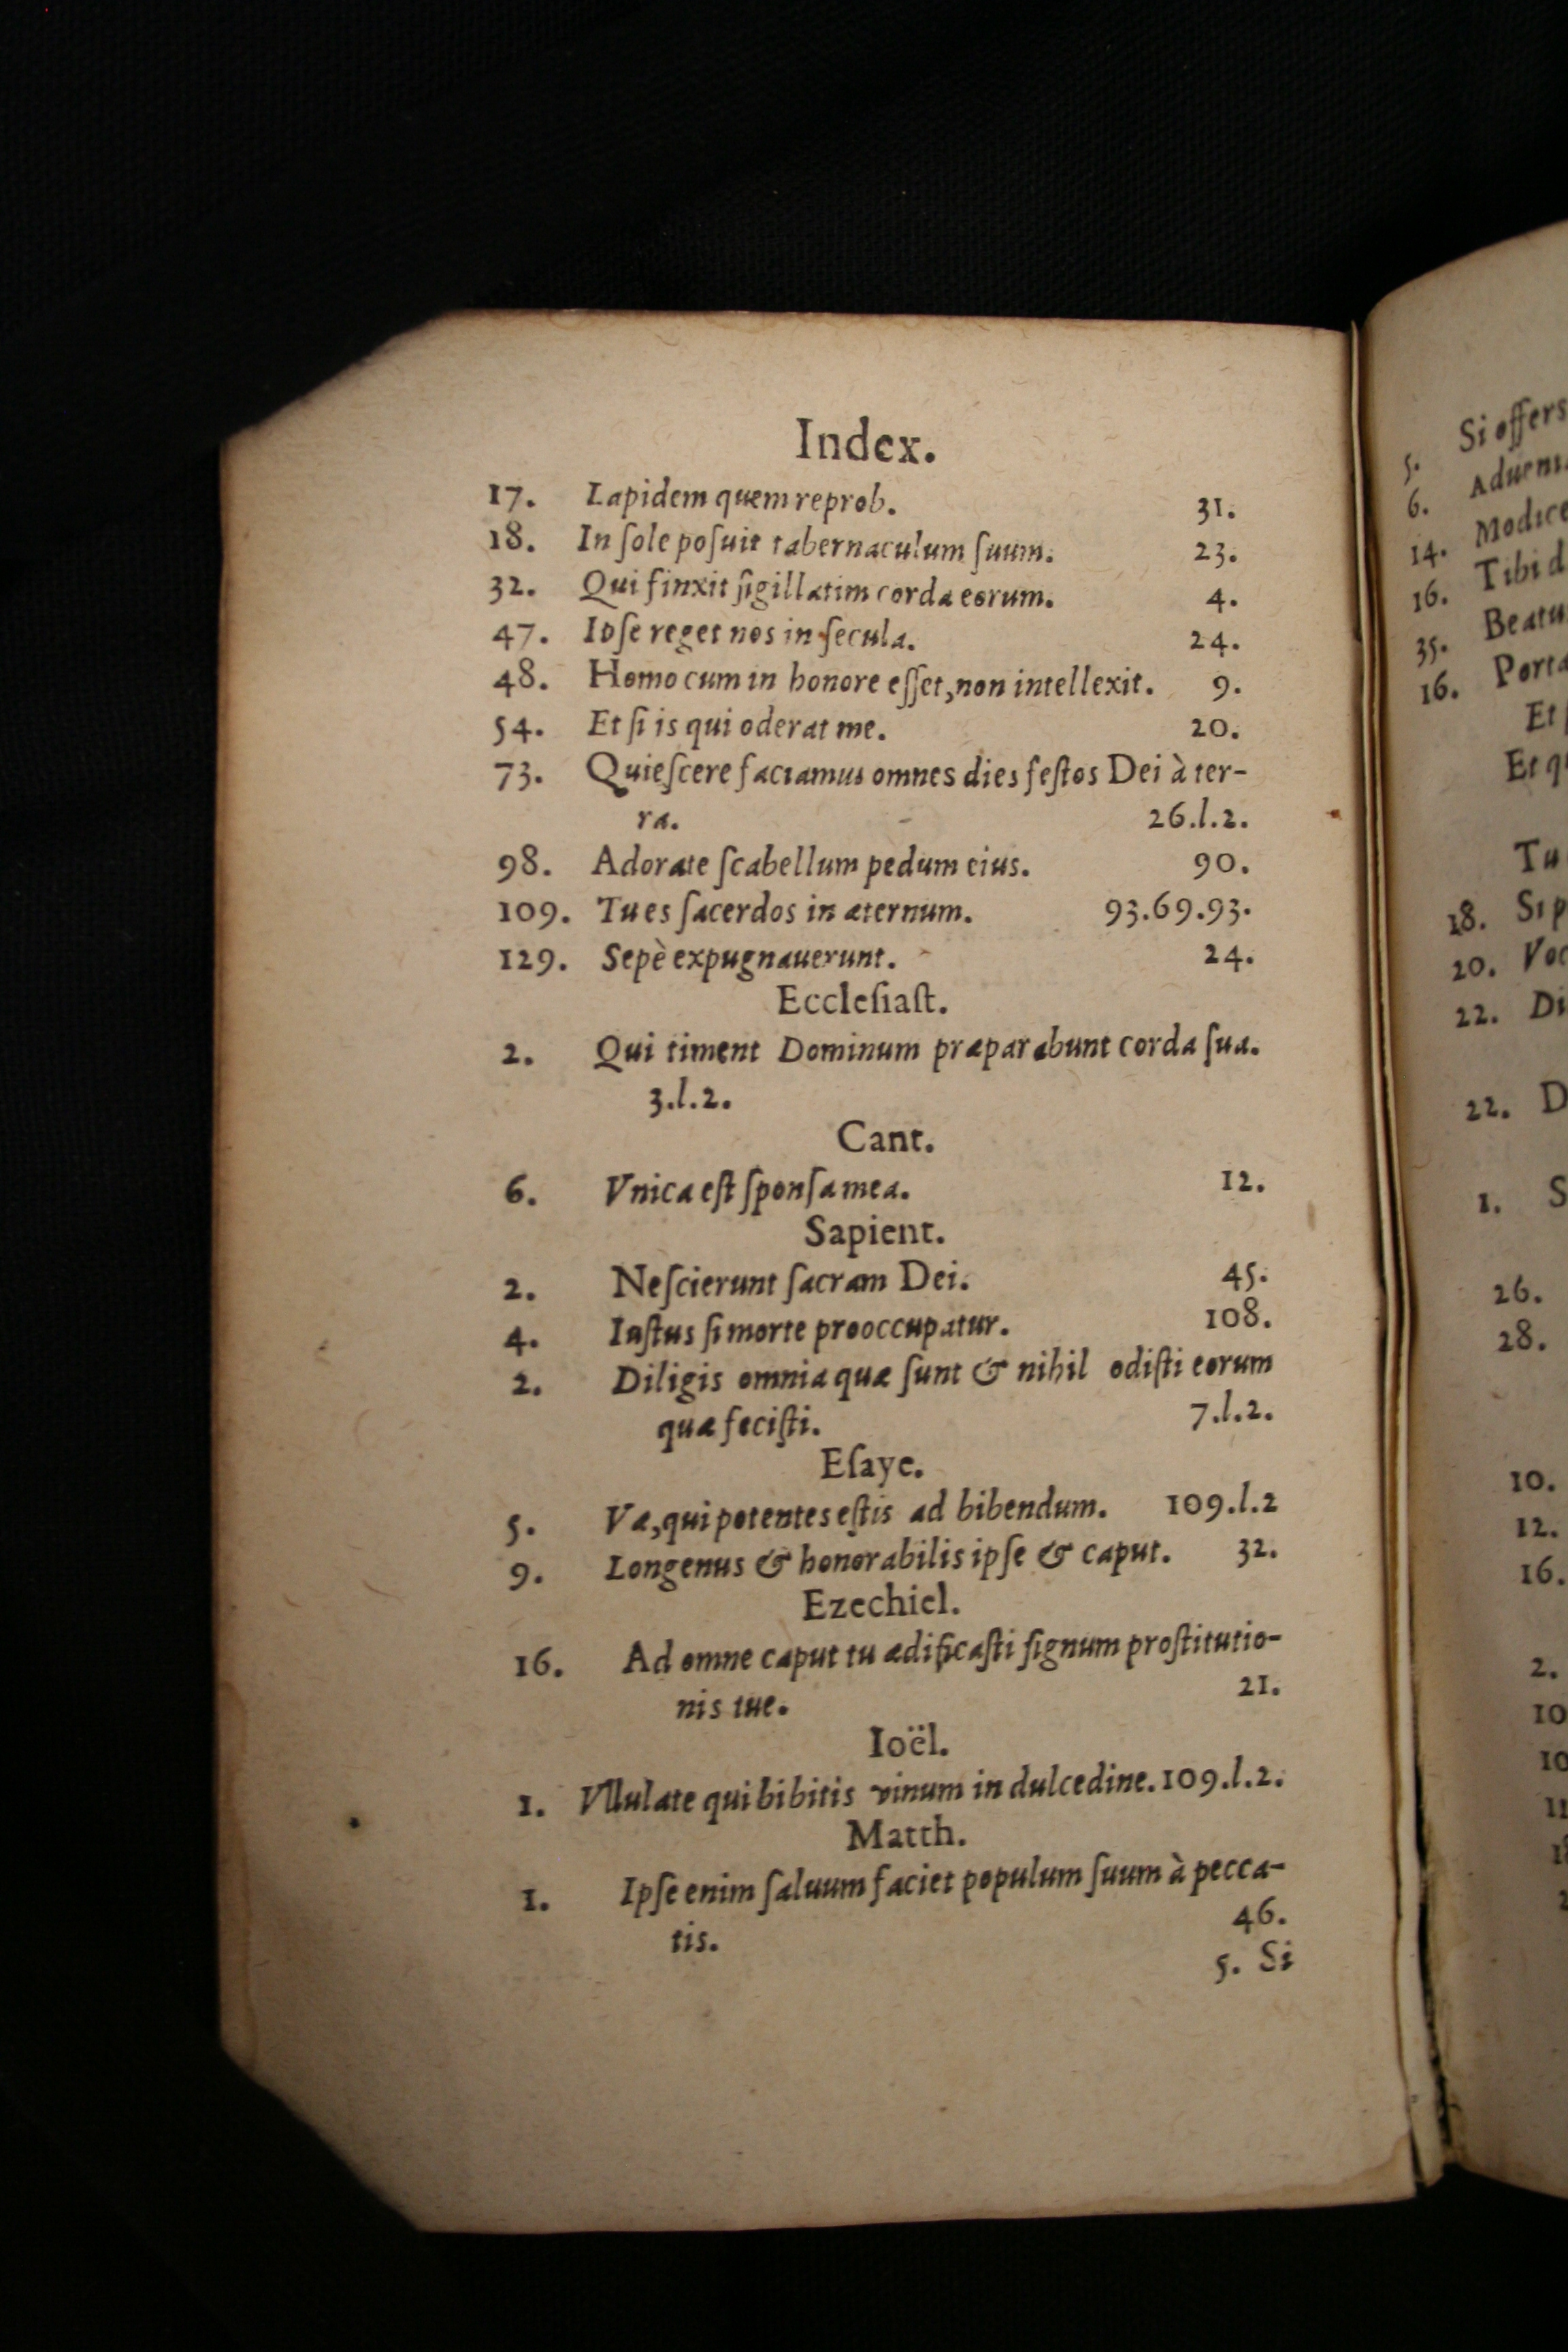 Index.
17. Lapidem quem reprob. 31.
18. In ſole poſuit tabernaculum ſuum. 23.
32. Qui finxit ſigillatim corda eorum. 4.
47. Ipſe reget nos in ſecula. 24.
48. Homo cum in honore eſſet, non intellexit. 9.
54. Et ſi is qui oderat me. 20.
73. Quieſcere faciamus omnes dies feſtos Dei à ter-
ra. 26.l.2.
98. Adorate ſcabellum pedum eius. 90.
109. Tu es ſacerdos in æternum. 93.69.93.
129. Sepè expugnauerunt. 24.
Eccleſiaſt.
2. Qui timent Dominum præparabunt corda ſua.
3.l.2.
Cant.
6. Vnica eſt ſponſa mea. 12.
Sapient.
2. Neſcierunt ſacram Dei. 45.
4. Iuſtus ſi morte prooccupatur. 108.
2. Diligis omnia quæ ſunt & nihil odiſti eorum
quæ feciſti. 7.l.2.
Eſaye.
5. Væ, qui potentes eſtis ad bibendum. 109.l.2
9. Longenus & honorabilis ipſe & caput. 32.
Ezechiel.
16. Ad omne caput tu ædificaſti ſignum proſtitutio-
nis tue. 21.
Ioël.
1. Vllulate qui bibitis vinum in dulcedine. 109.l.2.
Matth.
1. Ipſe enim ſaluum faciet populum ſuum à pecca-
tis. 46.
5. Si
5. Si offers
6.
14.
16. Tibi
35.
16.
Et
Tu
18.
20.
22.
22.
1.
26.
28.
10.
12.
16.
2.